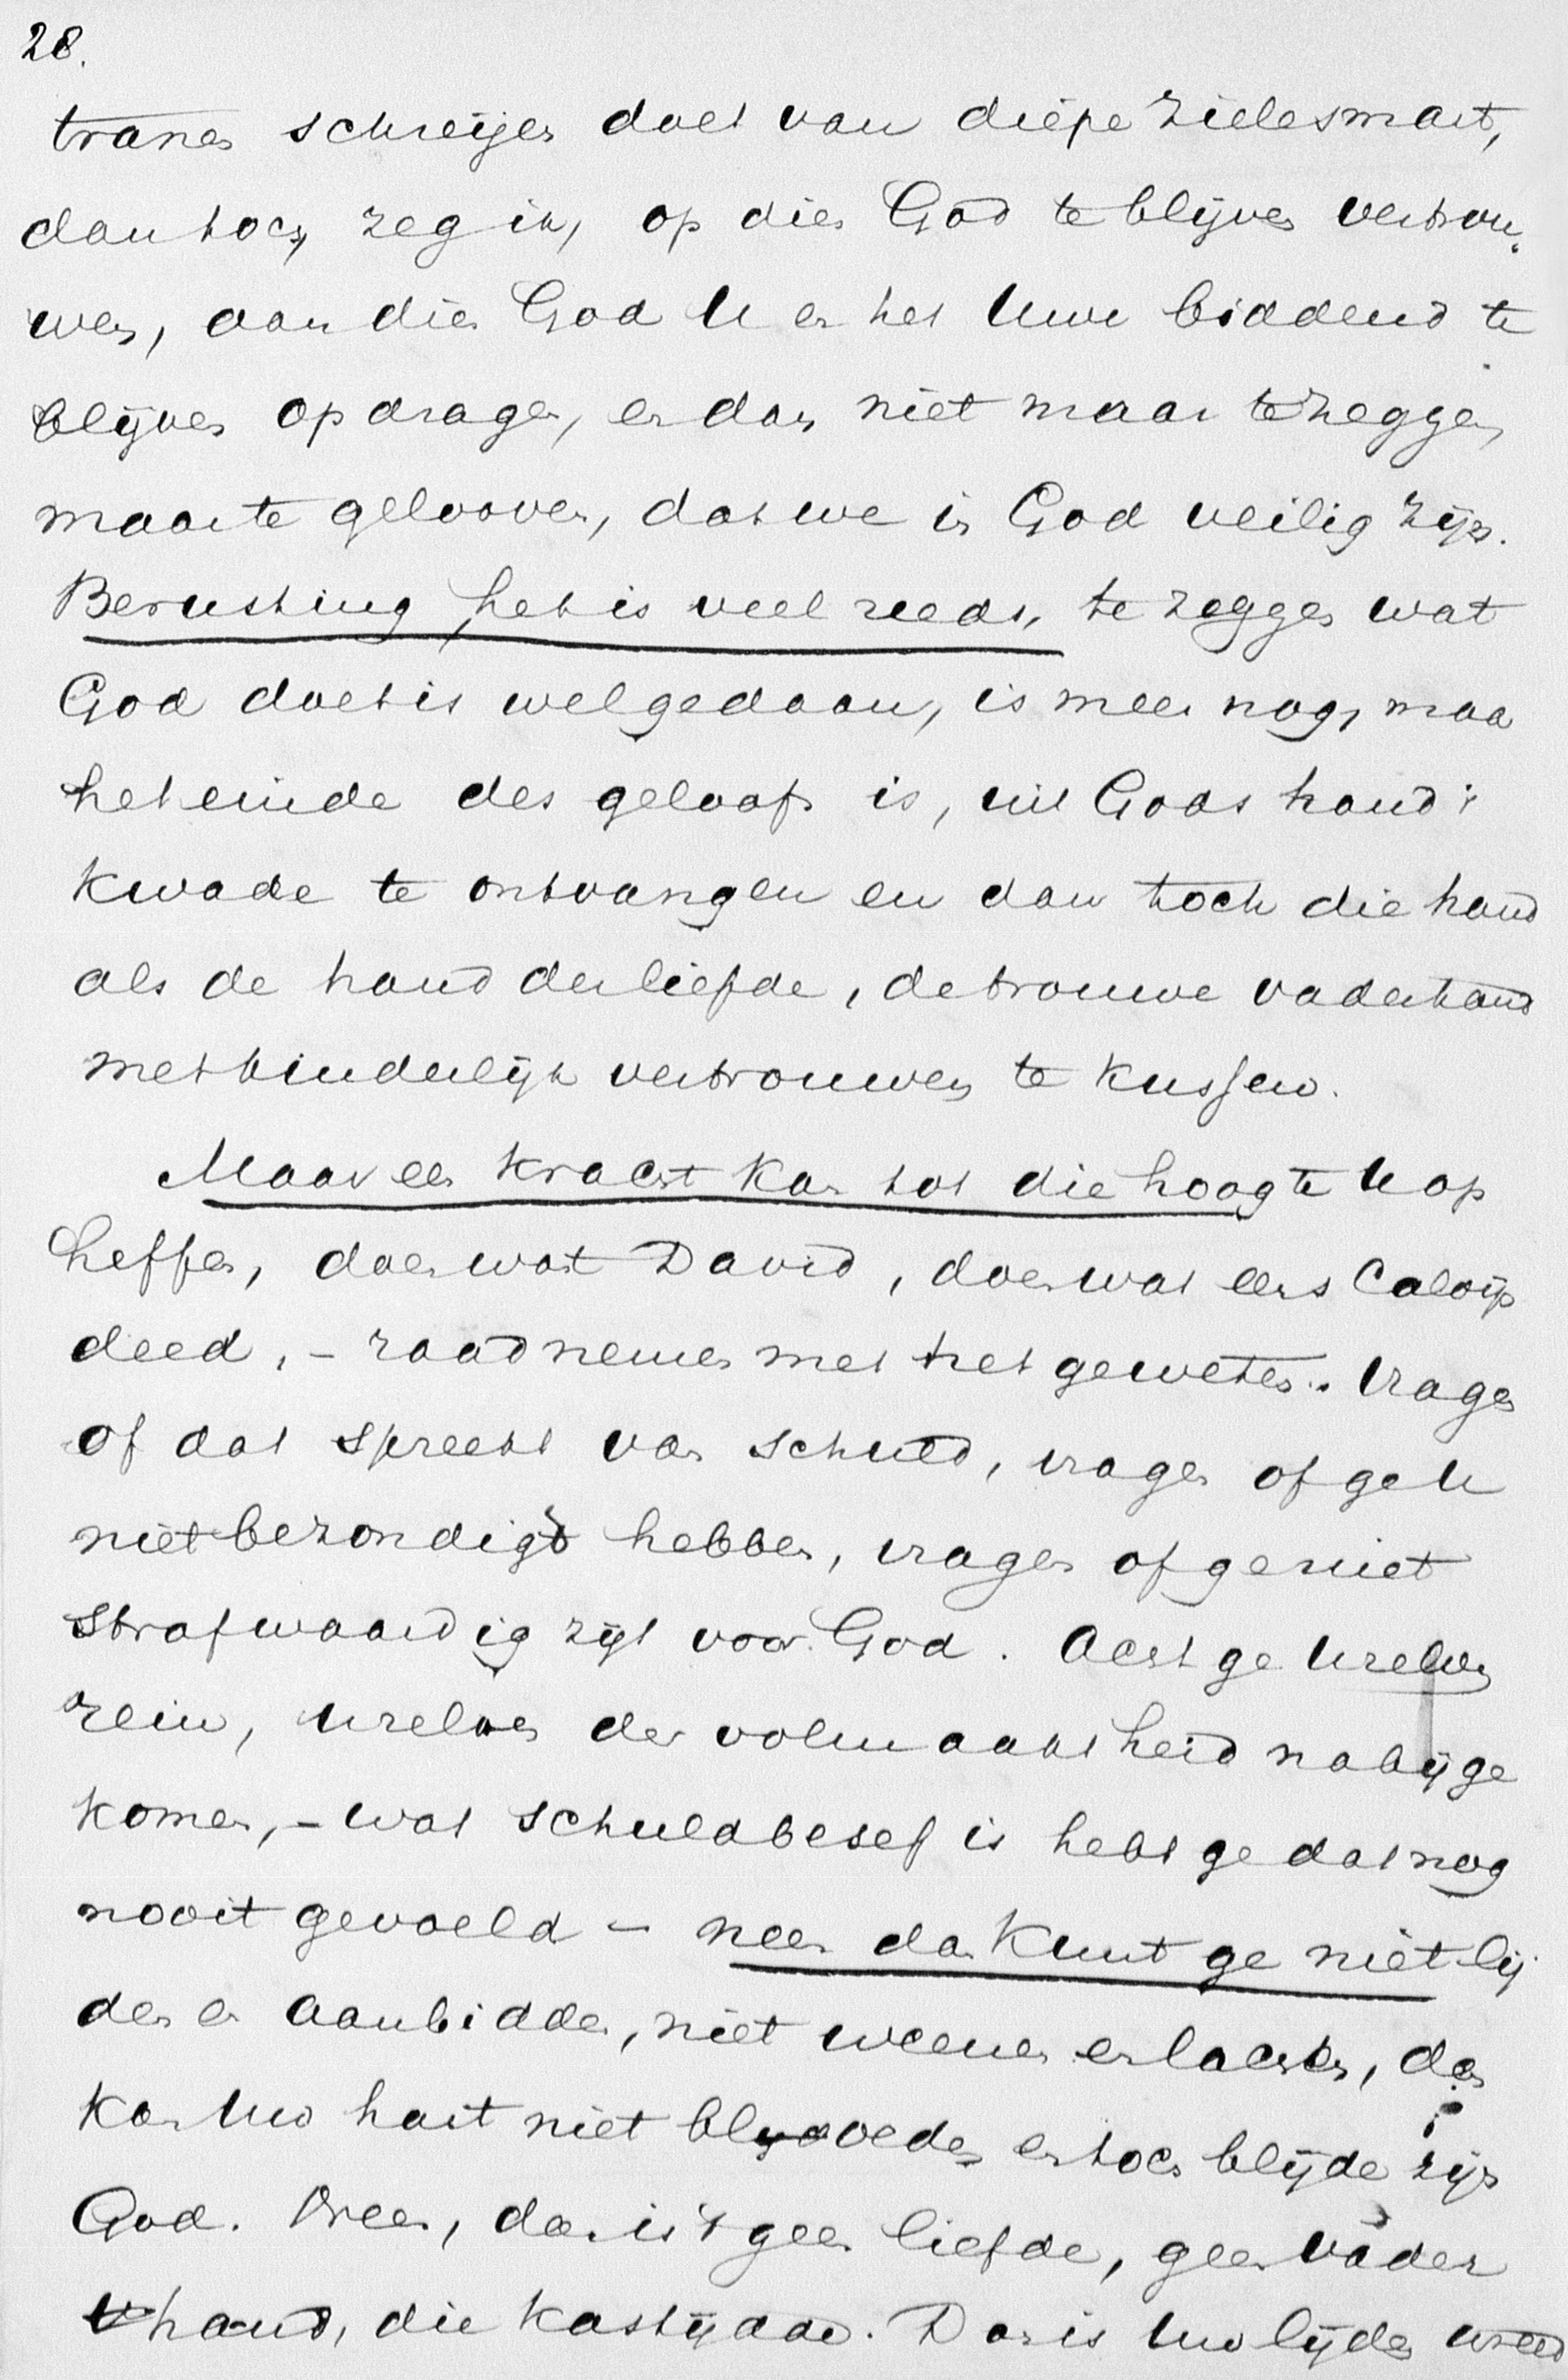 28.
tranen schreijen doet van diepe zielesmart,
dan toch, zeg ik, op dien God te blijven vertrou-
wen, aan dien God U en het Uwe biddend te
blijven opdragen, en dan niet maar te zeggen,
maar te gelooven, dat we in God veilig zijn.
Berusting, het is veel reeds, te zeggen wat
God doet is welgedaan, is meer nog, maar
het einde des geloofs is, uit Gods hand 't
kwade te ontvangen en dan toch die hand
als de hand der liefde, de trouwe vaderhand
met kinderlijk vertrouwen te kussen.
Maar een kracht kan tot die hoogte U op
heffen, doen wat David, doen wat eens Calvijn
deed, – raad nemen met het geweten. Vragen
of dat spreekt van schuld, vragen of ge U
niet bezondigd hebben, vragen of ge niet
strafwaardig zijt voor God. Acht ge U zelven
rein, U zelven der volmaaktheid nabij ge
komen, – wat schuldbesef is hebt ge dat nog
nooit gevoeld – neen dan kunt ge niet lij
den en aanbidden, niet weenen en lachen, dan
kan Uw hart niet bloeden en toch blijde zijn in
God. Neen, dan is 't geen liefde, geen vader
hand, die kastijdde. Dan is Uw lijden wreed